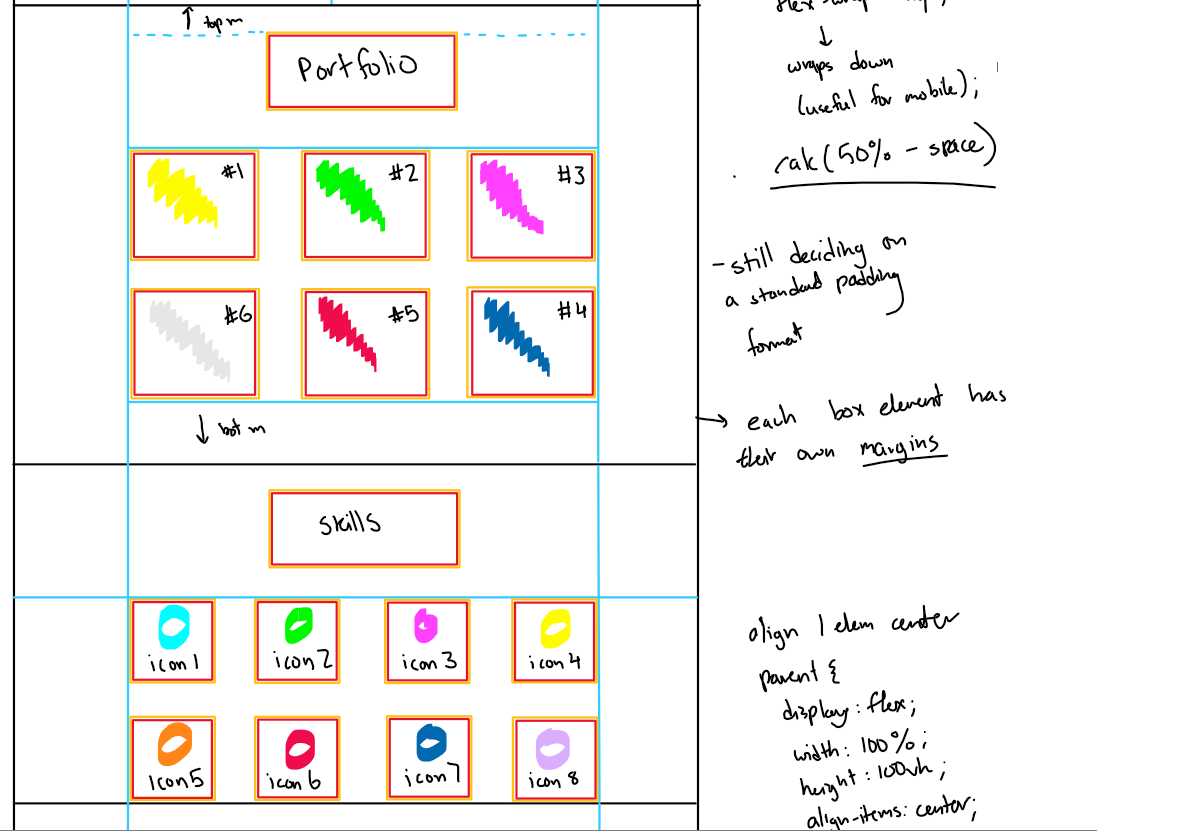 top m
Portfolio
#1
#2
#3
#6
#5
#4
bot m
skills
icon 1
icon 2
icon 3
icon 4
Icon 5
icon 6
icon 7
icon 8
wraps down
(useful for mobile);
calc(50% - space)
- still deciding on
a standard padding
format
→ each box element has
their own margins
align 1 elem center
parent {
display: flex;
width: 100%;
height: 100vh;
align-items: center;